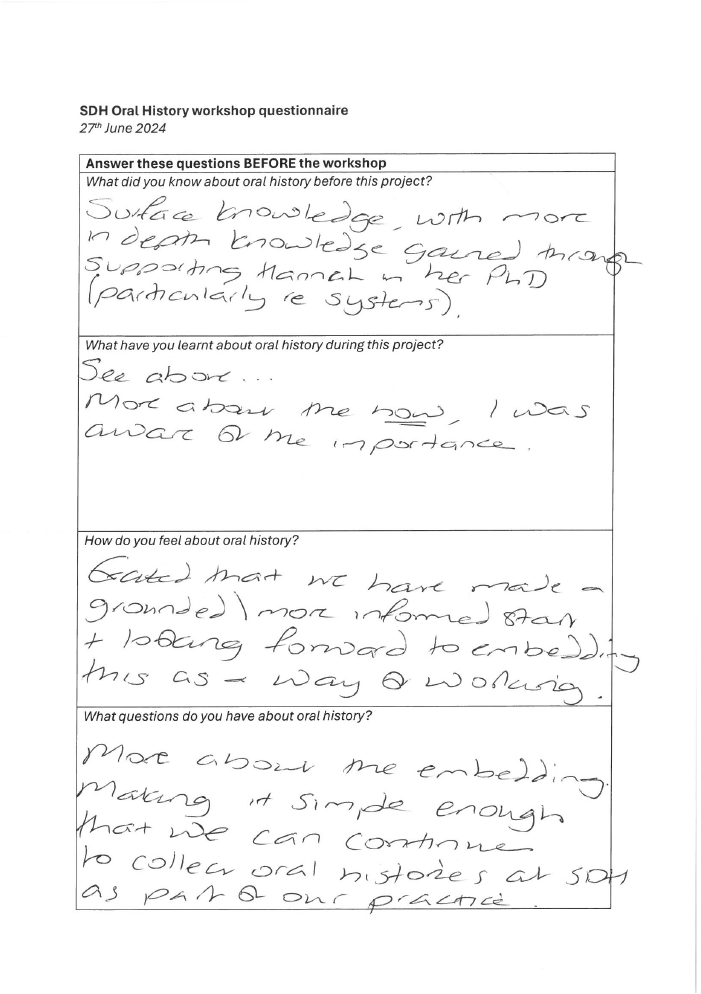 SDH Oral History workshop questionnaire
27th June 2024
Answer these questions BEFORE the workshop
What did you know about oral history before this project?
Surface knowledge, with more
in depth knowledge gained through
supporting Hannah in her PhD
(particularly re systems).
What have you learnt about oral history during this project?
See above...
More about the how, I was
aware of the importance.
How do you feel about oral history?
that we have made a
grounded \ more informed start
+ looking forward to embedding
this as a way of working.
What questions do you have about oral history?
More about the embedding.
Making it simple enough
that we can continue
to collect oral histories at SDH
as part of our practice.